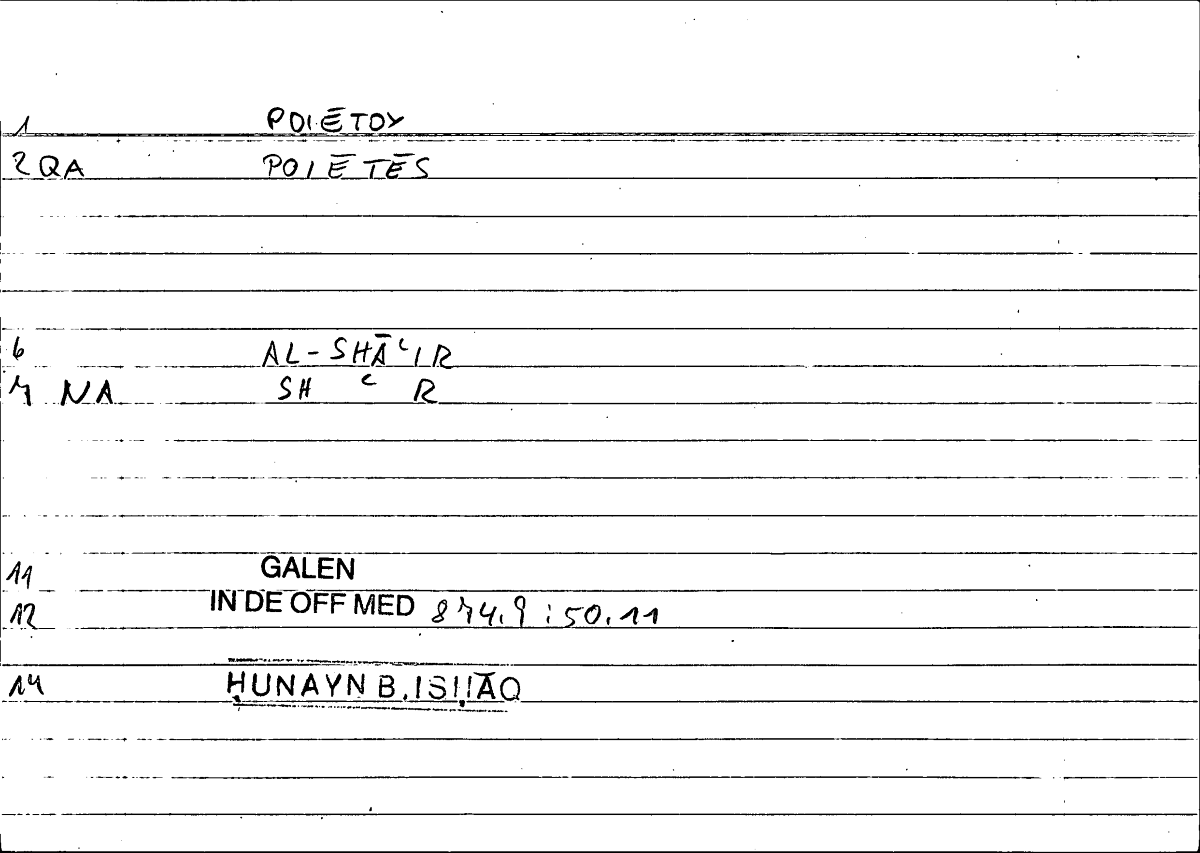 1 POIĒTOY
2 QA POIĒTĒS
6 AL-SHĀʿIR
7 NA SH ʿ R
11 GALEN
12 IN DE OFF MED 874.9 : 50.11
14 ḤUNAYN B. ISḤĀQ